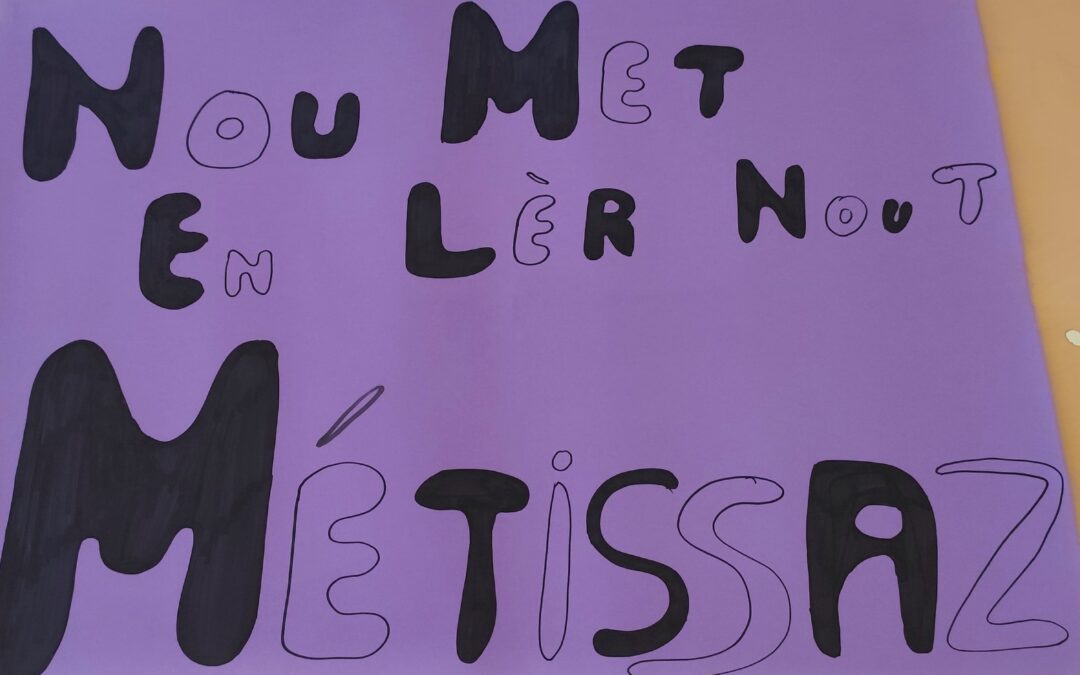 NOU MET
EN LÈR NOUT
MÉTiSSAZ